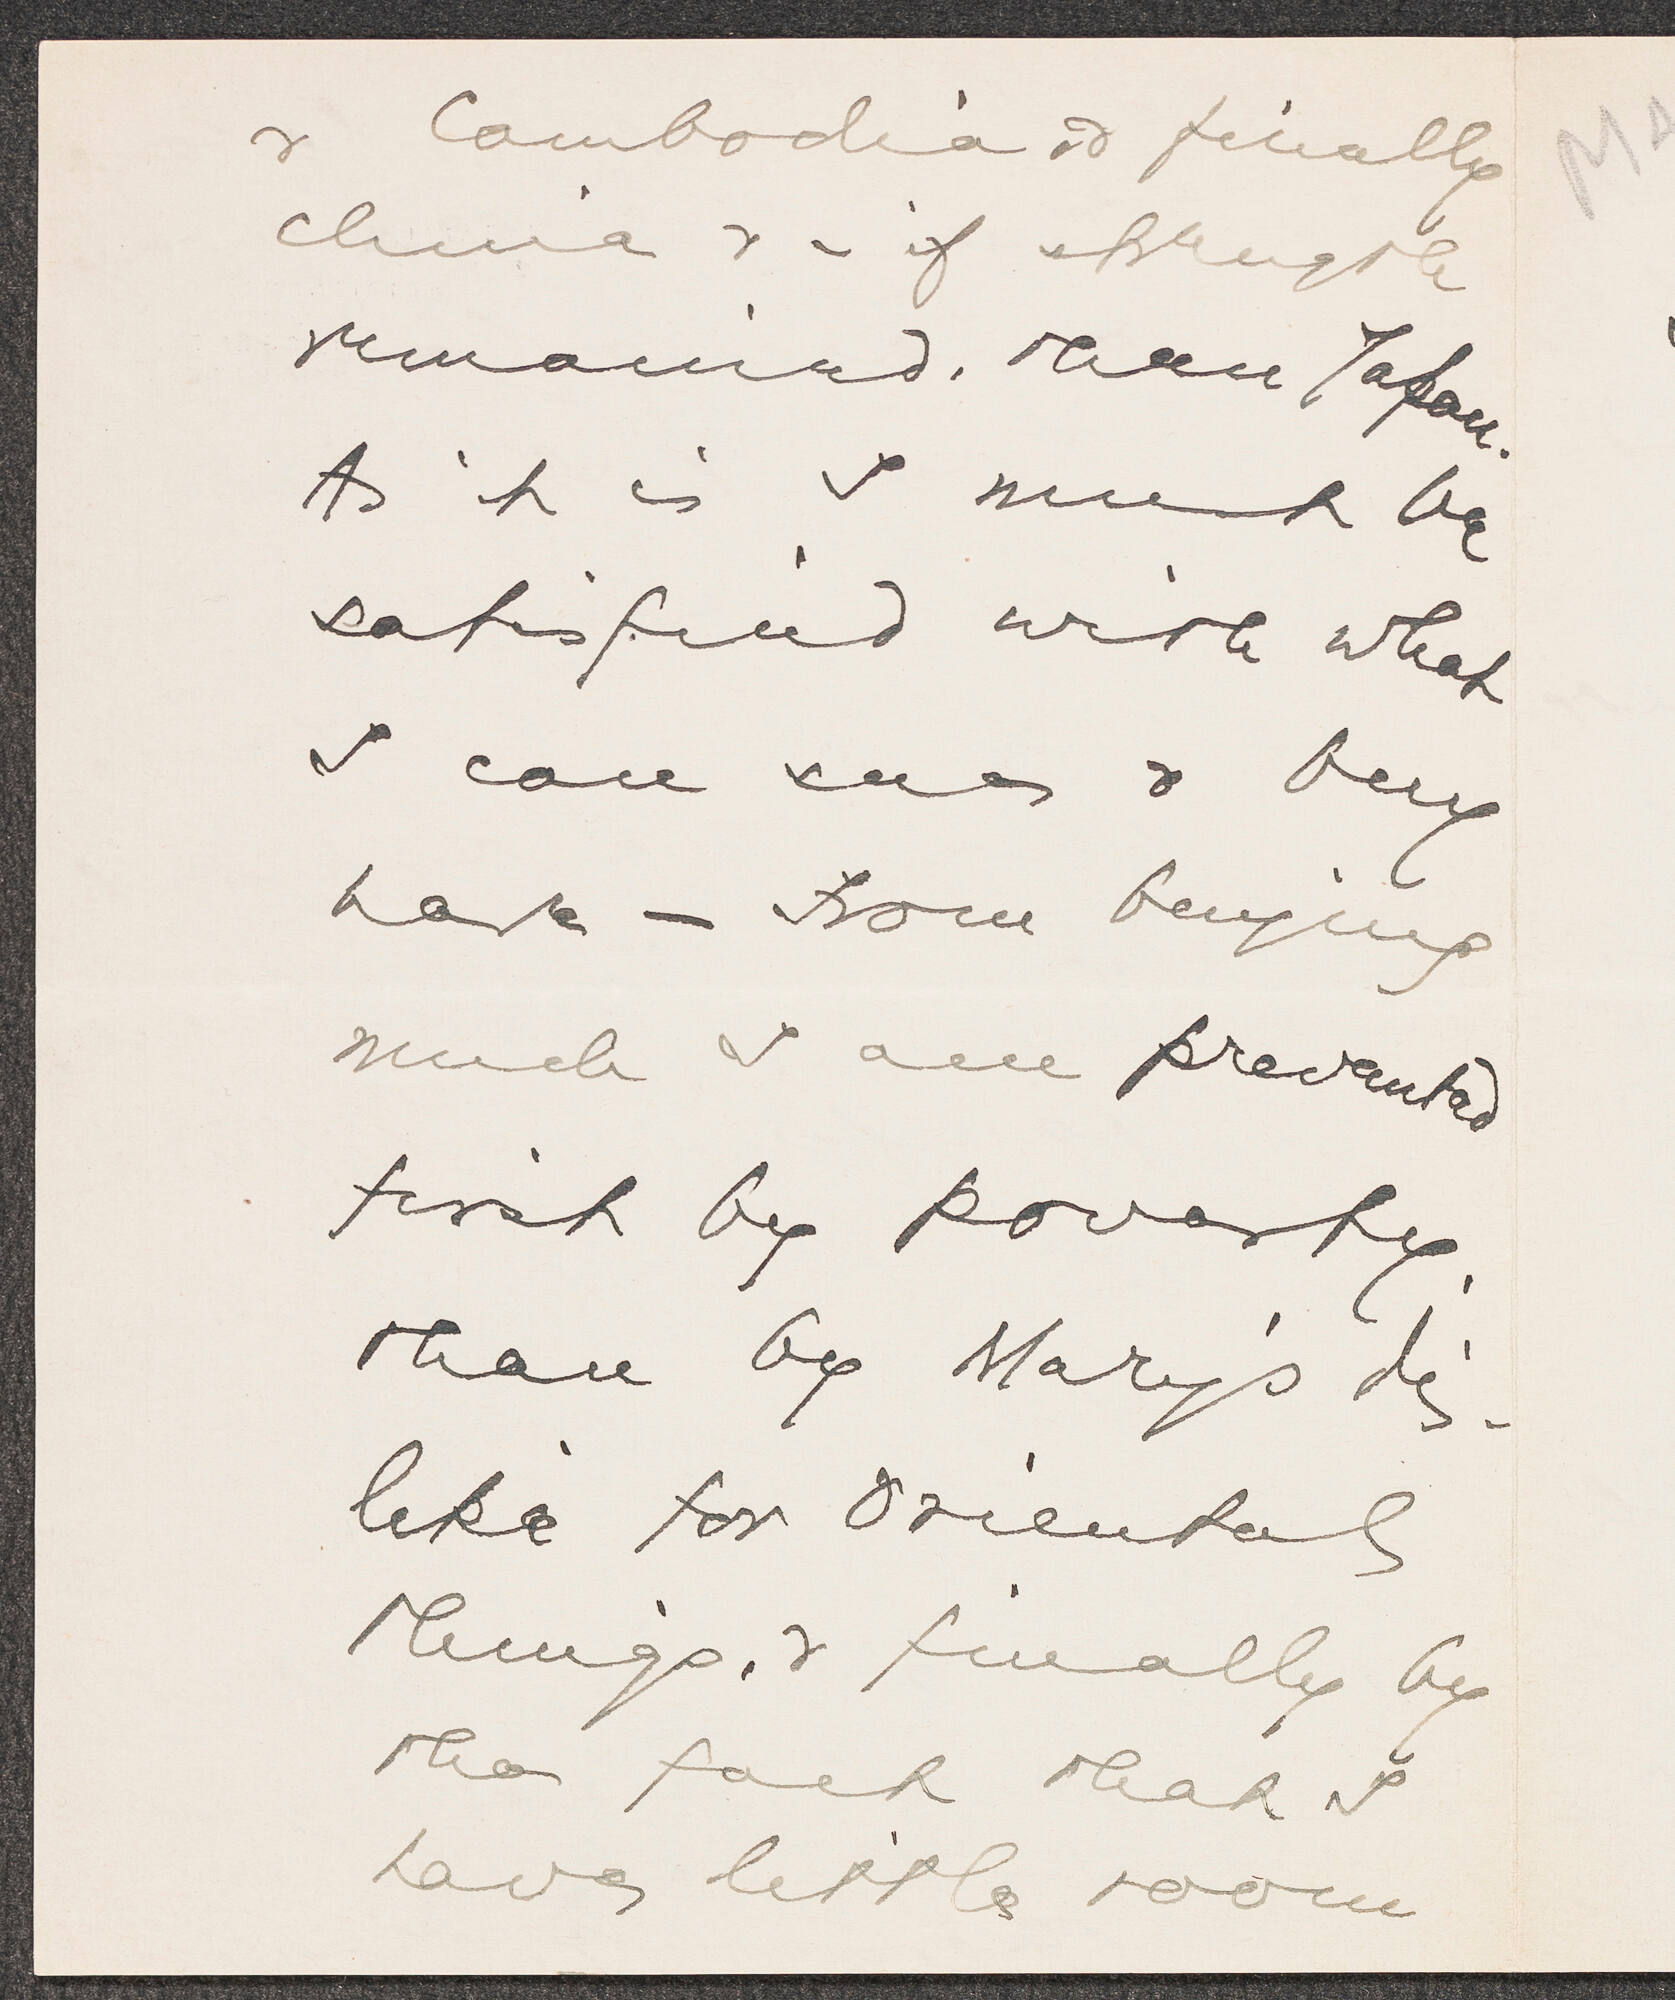 & Cambodia & finally
China & - if strength
remained, then Japan.
As it is I must be
satisfied with what
I can see & buy
here — From buying
much I am prevented
first by poverty,
then by Mary's dis-
like for Oriental
things, & finally by
the fact that I
have little room
MA